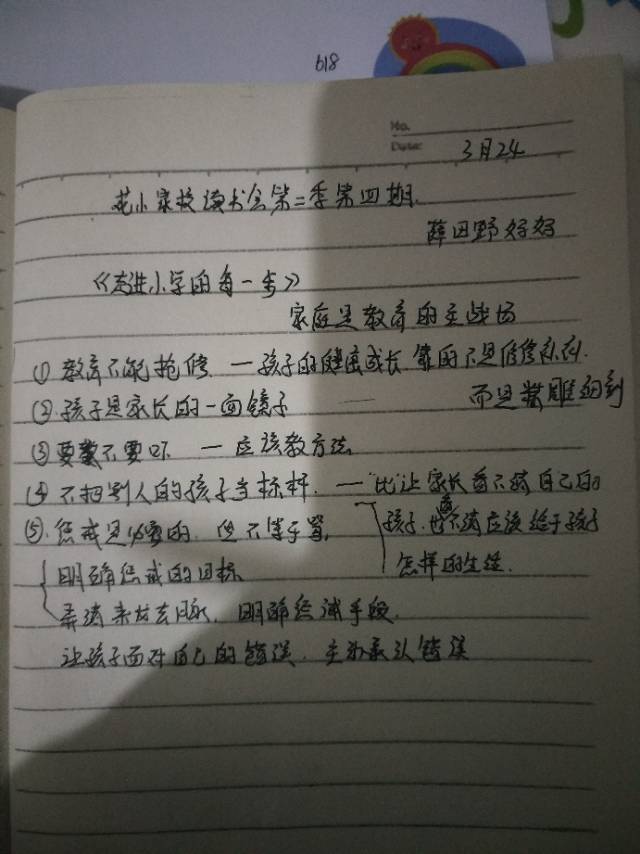 618
No.
Date: 3月24
花小家校读书会第二季第四期.
薛田野好好
《走进小学的每一步》
家庭是教育的主战场
① 教育不能抢修 — 孩子的健康成长靠的不是修修补补.
而是精雕细刻
② 孩子是家长的一面镜子
③ 要教不要吓 — 应该教方法
④ 不把别人的孩子当标杆. — "比"让家长看不清自己的
孩子. 也看不清应该给于孩子
怎样的生活.
⑤. 惩戒是必要的. 但不等于骂,
明确惩戒的目标
弄清来龙去脉. 明确惩诫手段.
让孩子面对自己的错误. 主动承认错误